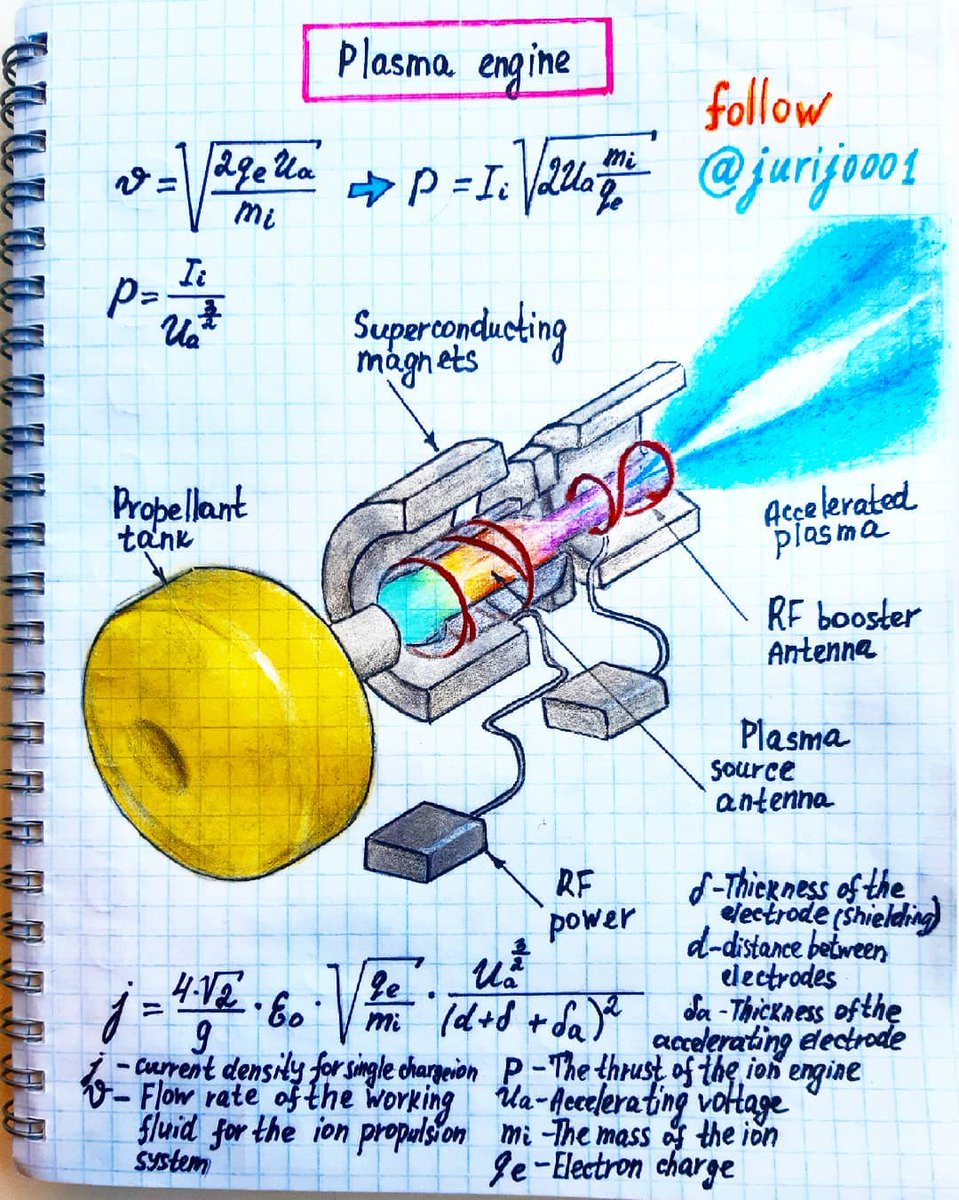 Plasma engine
follow
@jurij0001
𝜗 = √(2qe Ua / mi) ➡ P = Ii √(2Ua mi / qe)
P = Ii / Ua^(3/2)
Superconducting
magnets
Propellant
tank
Accelerated
plasma
RF booster
Antenna
Plasma
source
antenna
RF
power
δ - Thickness of the
electrode (shielding)
d - distance between
electrodes
δa - Thickness of the
accelerating electrode
j = 4·√2 / 9 · ε0 · √(qe / mi) · Ua^(3/2) / (d + δ + δa)^2
j - current density for single charge ion
𝜗 - Flow rate of the working
fluid for the ion propulsion
system
P - The thrust of the ion engine
Ua - Accelerating voltage
mi - The mass of the ion
qe - Electron charge